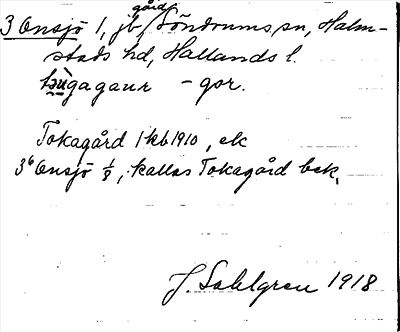 gård
3 Onsjö 1, jb, Söndrums sn, Halm-
stads hd, Hallands l.
gagaur - gor.
Tokagård 1 kb 1910, ek
3⁶ Onsjö 1/8, kallas Tokagård bek.
J. Sahlgren 1918